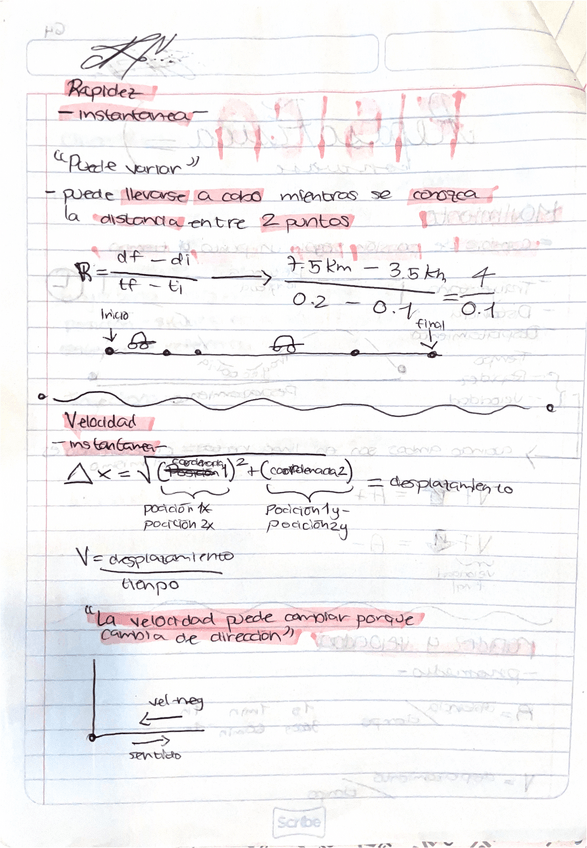 Rapidez
- instantanea -
"Puede variar"
- puede llevarse a cabo mientras se conozca
la distancia entre 2 puntos
R = df - di / tf - ti → 7.5 km - 3.5 km / 0.2 - 0.1 = 4 / 0.1
Inicio
final
Velocidad
- instantanea -
Δx = √(coordenada 1)² + (coordenada 2) = desplatamiento
pocición 1x - pocición 2x
Pocición 1y - pocición 2y
V = desplatamiento / tienpo
"La velocidad puede cambiar porque
cambia de dirección"
vel-neg
sentido
Scribe